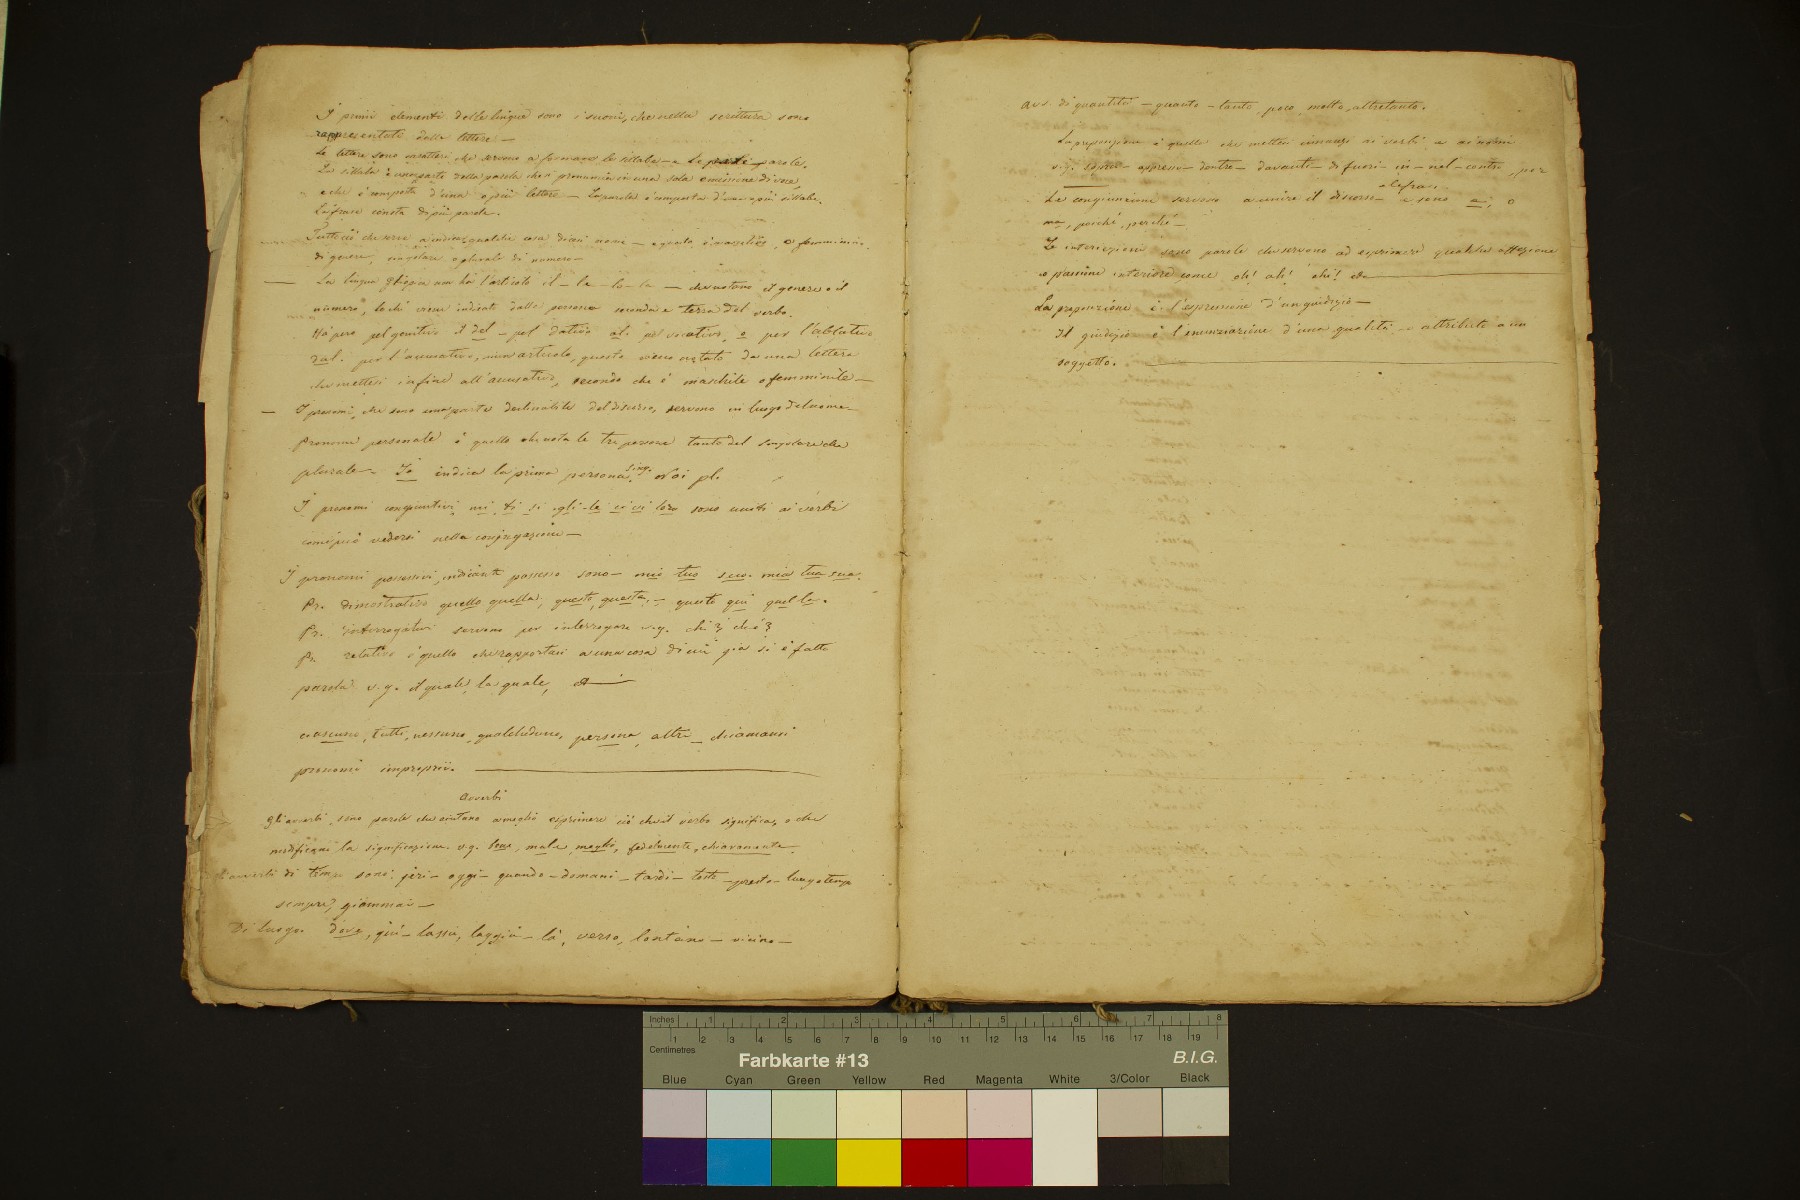 I primi elementi delle lingue sono i suoni, che nella scrittura sono
rappresentati dalle lettere —
Le lettere sono caratteri che servono a formare le sillabe — e le parole.
La sillaba è una parte della parola che si pronuncia in una sola emissione di voce,
e che è composta d'una o più lettere — La parola è composta d'una o più sillabe.
La frase consta di più parole.
Tutto ciò che serve a indicar qualche cosa dicesi nome — e questo è maschile, o femminino
di genere, singolare o plurale di numero —
La lingua ghega non ha l'articolo il — le — lo — la — che notano il genere e il
numero, lo chè viene indicato dalla persona seconda e terza del verbo.
Ha però pel genitivo il del — pel dativo al. pel vocativo, o per l'ablativo
dal. per l'accusativo, niun articolo, questo viene notato da una lettera
che mettesi infine all'accusativo, secondo che è maschile o femminile —
— I pronomi, che sono una parte declinabile del discorso, servono in luogo del nome —
Pronome personale è quello che nota le tre persone tanto del singolare che
plurale — Io indica la prima persona sing. Noi pl.
I pronomi congiuntivi mi, ti si gli — le ci vi loro sono uniti ai verbi
come può vedersi nella conjugazione —
I pronomi possessivi, indicanti possesso sono — mio tuo suo. mia tua sua.
Pr. dimostrativo quello quella, questo, questa, — queste qui quelle.
Pr. interrogativi servono per interrogare v.g. chi? che?
Pr. relativo è quello che rapportasi a una cosa di cui già si è fatta
parola v.g. il quale, la quale,
ciascuno, tutti, nessuno, qualcheduno, persona, altri — chiamansi
pronomi improprii.
Avverbi
gli avverbi, sono parole che aiutano a meglio esprimere ciò che il verbo significa, o che
modificano la significazione. v.g. bene, male, meglio, fedelmente, chiaramente.
avverbi di tempo sono: jeri — oggi — quando — domani — tardi — tosto — presto — lungo tempo
sempre, giammai —
Di luogo. dove, qui — lassù, laggiù — là, verso, lontano — vicino —
avv. di quantità — quanto — tanto, poco, molto, altretanto.
La preposizione è quella che mettesi innanzi ai verbi e ai nomi
v.g. sopra — appresso — dentro — davanti — di fuori — in — nel — contro, per
— la fra.
Le congiunzioni servono a unire il discorso — e sono e, o
ma, poiché, perché —
Le interiezioni sono parole che servono ad esprimere qualche affezione
o passione interiore come oh! ah! ehi!
La proposizione è l'espressione d'un giudizio —
Il giudizio è l'enunziazione d'una qualità o attributo a un
soggetto.
Inches 1 2 3 4 5 6 7 8
Centimetres 1 2 3 4 5 6 7 8 9 10 11 12 13 14 15 16 17 18 19
Farbkarte #13 B.I.G.
Blue Cyan Green Yellow Red Magenta White 3/Color Black